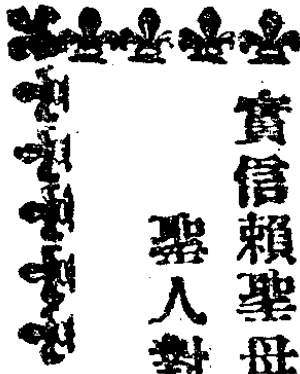 實信賴聖母
聖人對